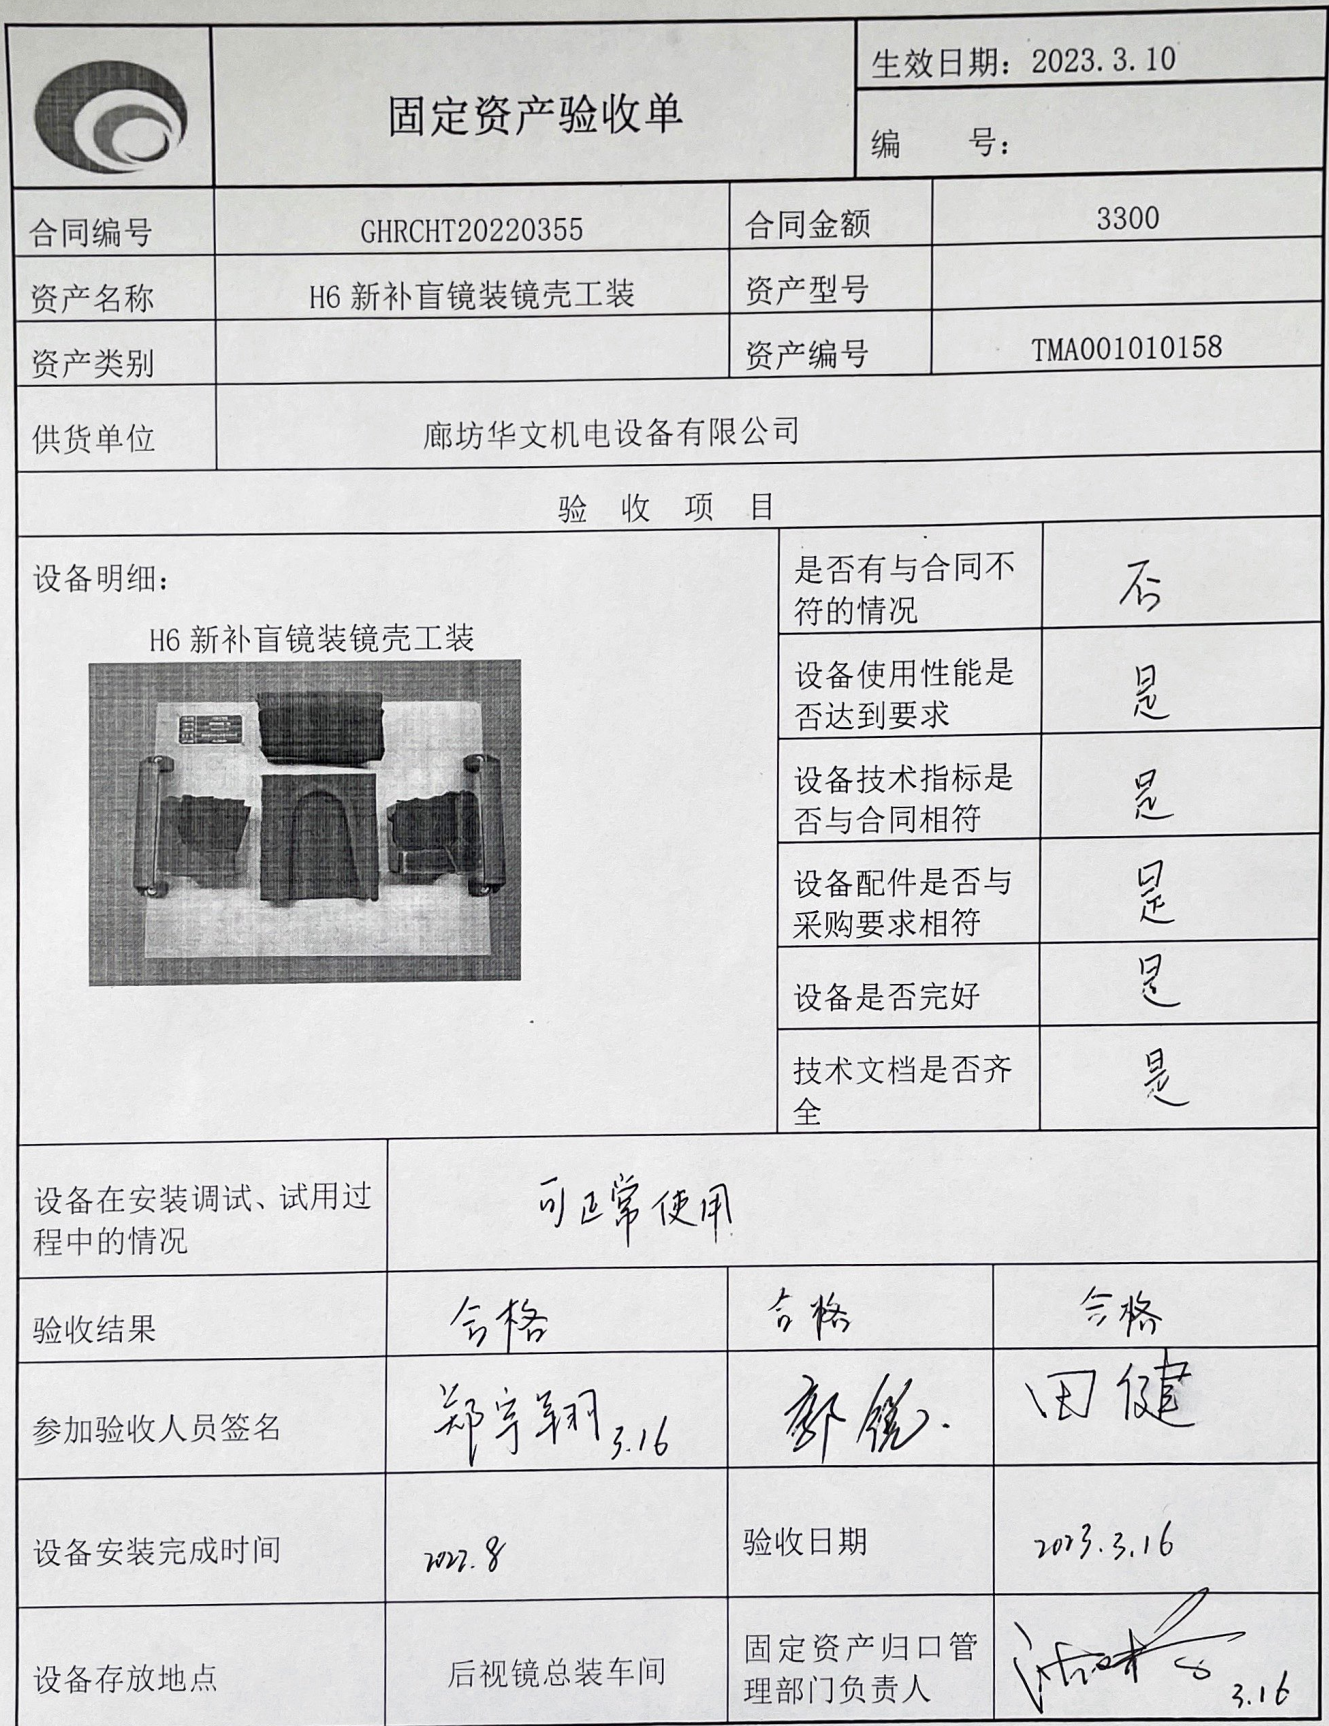 固定资产验收单
生效日期：2023.3.10
编 号：
合同编号 GHRCHT20220355 合同金额 3300
资产名称 H6 新补盲镜装镜壳工装 资产型号
资产类别 资产编号 TMA001010158
供货单位 廊坊华文机电设备有限公司
验 收 项 目
设备明细：
H6 新补盲镜装镜壳工装
是否有与合同不
符的情况
否
设备使用性能是
否达到要求
是
设备技术指标是
否与合同相符
是
设备配件是否与
采购要求相符
是
设备是否完好 是
技术文档是否齐
全
是
设备在安装调试、试用过
程中的情况
可正常使用
验收结果 合格 合格 合格
参加验收人员签名 郑宇翔 3.16 郭锐 田健
设备安装完成时间 2022.8 验收日期 2023.3.16
设备存放地点 后视镜总装车间
固定资产归口管
理部门负责人
3.16